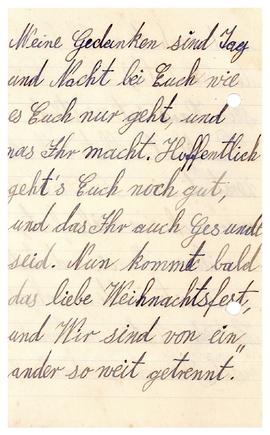 Meine Gedanken sind Tag
und Nacht bei Euch wie
es Euch nur geht, und
was Ihr macht. Hoffentlich
geht's Euch noch gut,
und das Ihr auch Gesundt
seid. Nun kommt bald
das liebe Weihnachtsfest,
und Wir sind von ein„
ander so weit getrennt".